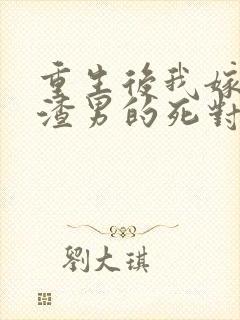 重生後我嫁
渣男的死對
劉大琪